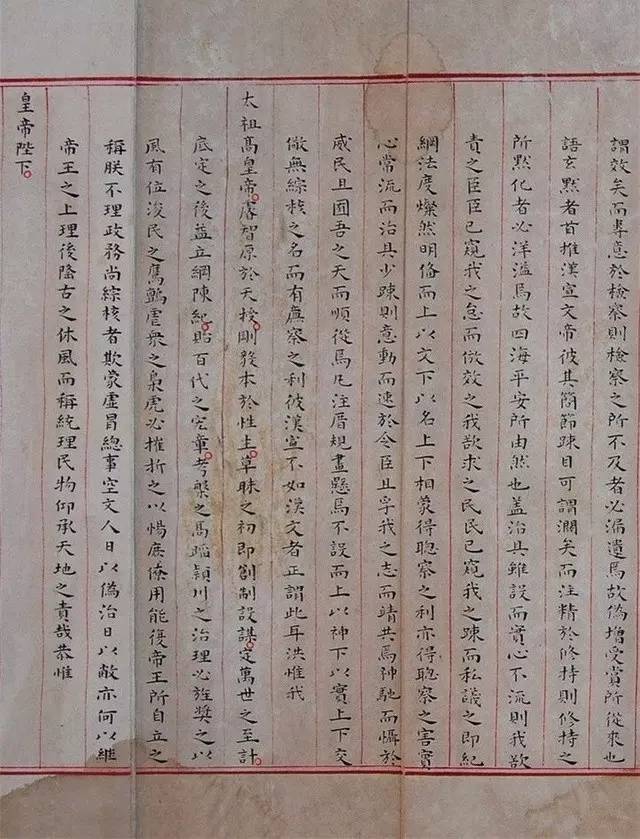 謂效矣而專意於檢察則檢察之所不及者必漏遺焉故偽增受賞所從來也
語玄默者首推漢宣文帝彼其簡節踈目可謂濶矣而注精於修持則修持之
所默化者必洋溢焉故四海平安所由然也盖治具雖設而實心不流則我欲
責之臣臣已窺我之怠而倣效之我欲求之民民已窺我之踈而私議之即紀
綱法度燦然明備而上以文下以名上下相蒙得聰察之利亦得聰察之害實
心常流而治具少踈則意動而速於令臣且孚我之志而靖共焉神馳而懾於
威民且囿吾之天而順從焉凡注厝規畫懸焉不設而上以神下以實上下交
儆無綜核之名而有廡察之利彼漢宣不如漢文者正謂此耳洪惟我
太祖高皇帝睿智原於天授剛發本於性生草昧之初即創制設謀定萬世之至計
底定之後益立綱陳紀貽百代之憲章考槃之高蹈潁川之治理必旌獎之以
風有位浚民之鷹鸇虐衆之梟虎必摧折之以惕庶僚用能復帝王所自立之
稱朕不理政務尚綜核者欺蒙虛冒總事空文人日以偽治日以敝亦何以繼
帝王之上理後隆古之休風而稱統理民物仰承天地之責哉恭惟
皇帝陛下